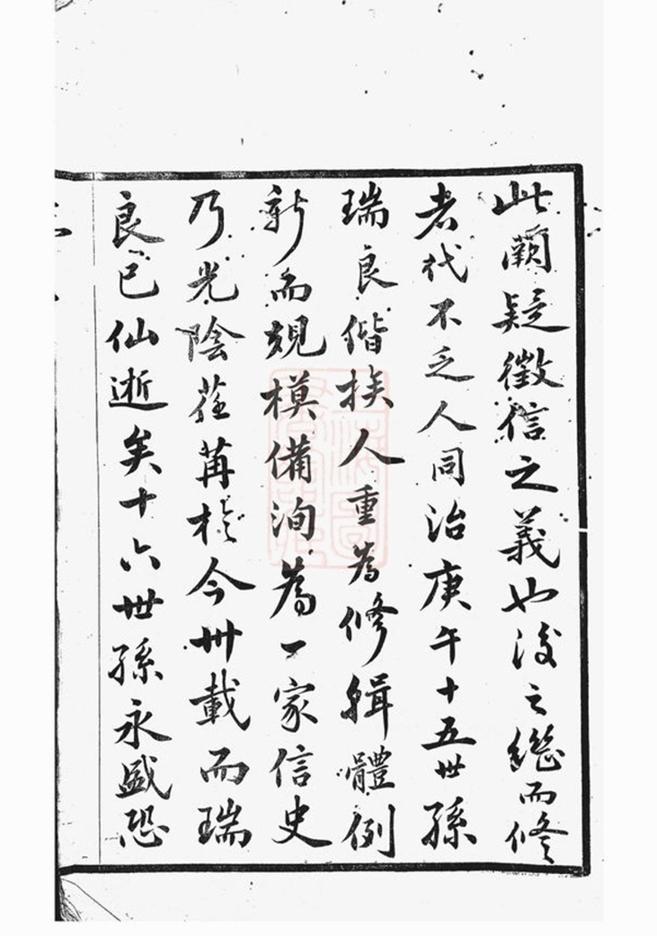 此闕疑徵信之義也後之繼而修
者代不乏人同治庚午十五世孫
瑞良偕族人重為修輯體例
新而規模備洵為一家信史
乃光陰荏苒於今卅載而瑞
良已仙逝矣十六世孫永盛恐